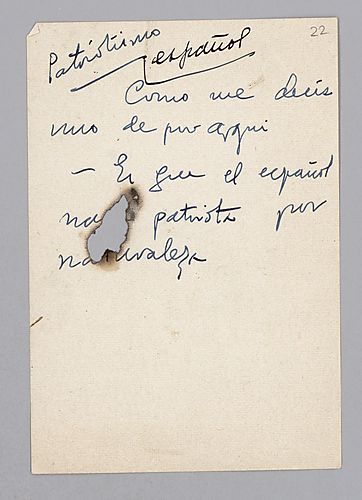 22
Patriotismo
español
Como me decía
uno de por aqui
— Es que el español
patriota por
naturaleza